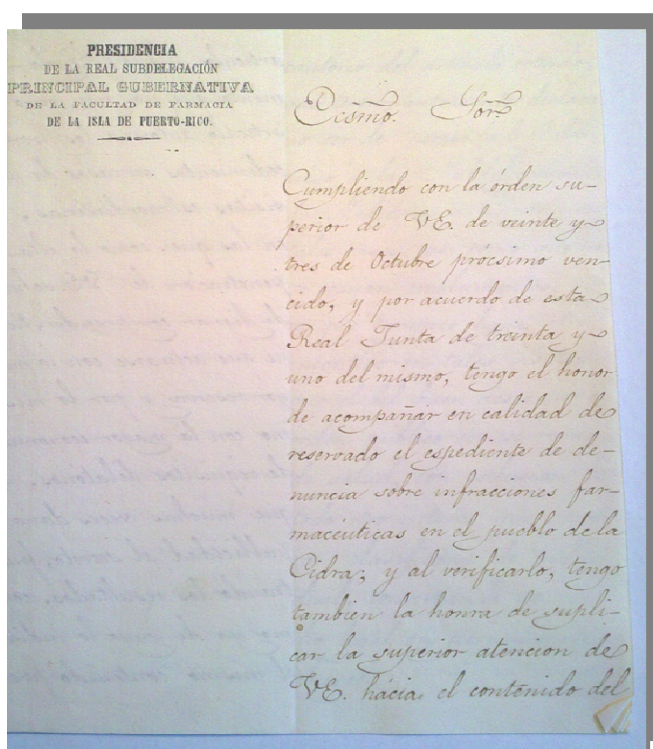 PRESIDENCIA
DE LA REAL SUBDELEGACIÓN
PRINCIPAL GUBERNATIVA
DE LA FACULTAD DE FARMACIA
DE LA ISLA DE PUERTO-RICO.
Ecsmo. Sor.
Cumpliendo con la órden su-
perior de VE. de veinte y
tres de Octubre prócsimo ven-
cido, y por acuerdo de esta
Real Junta de treinta y
uno del mismo, tengo el honor
de acompañar en calidad de
reservado el espediente de de-
nuncia sobre infracciones far-
macéuticas en el pueblo de la
Cidra; y al verificarlo, tengo
tambien la honra de supli-
car la superior atencion de
VE. hácia el contenido del